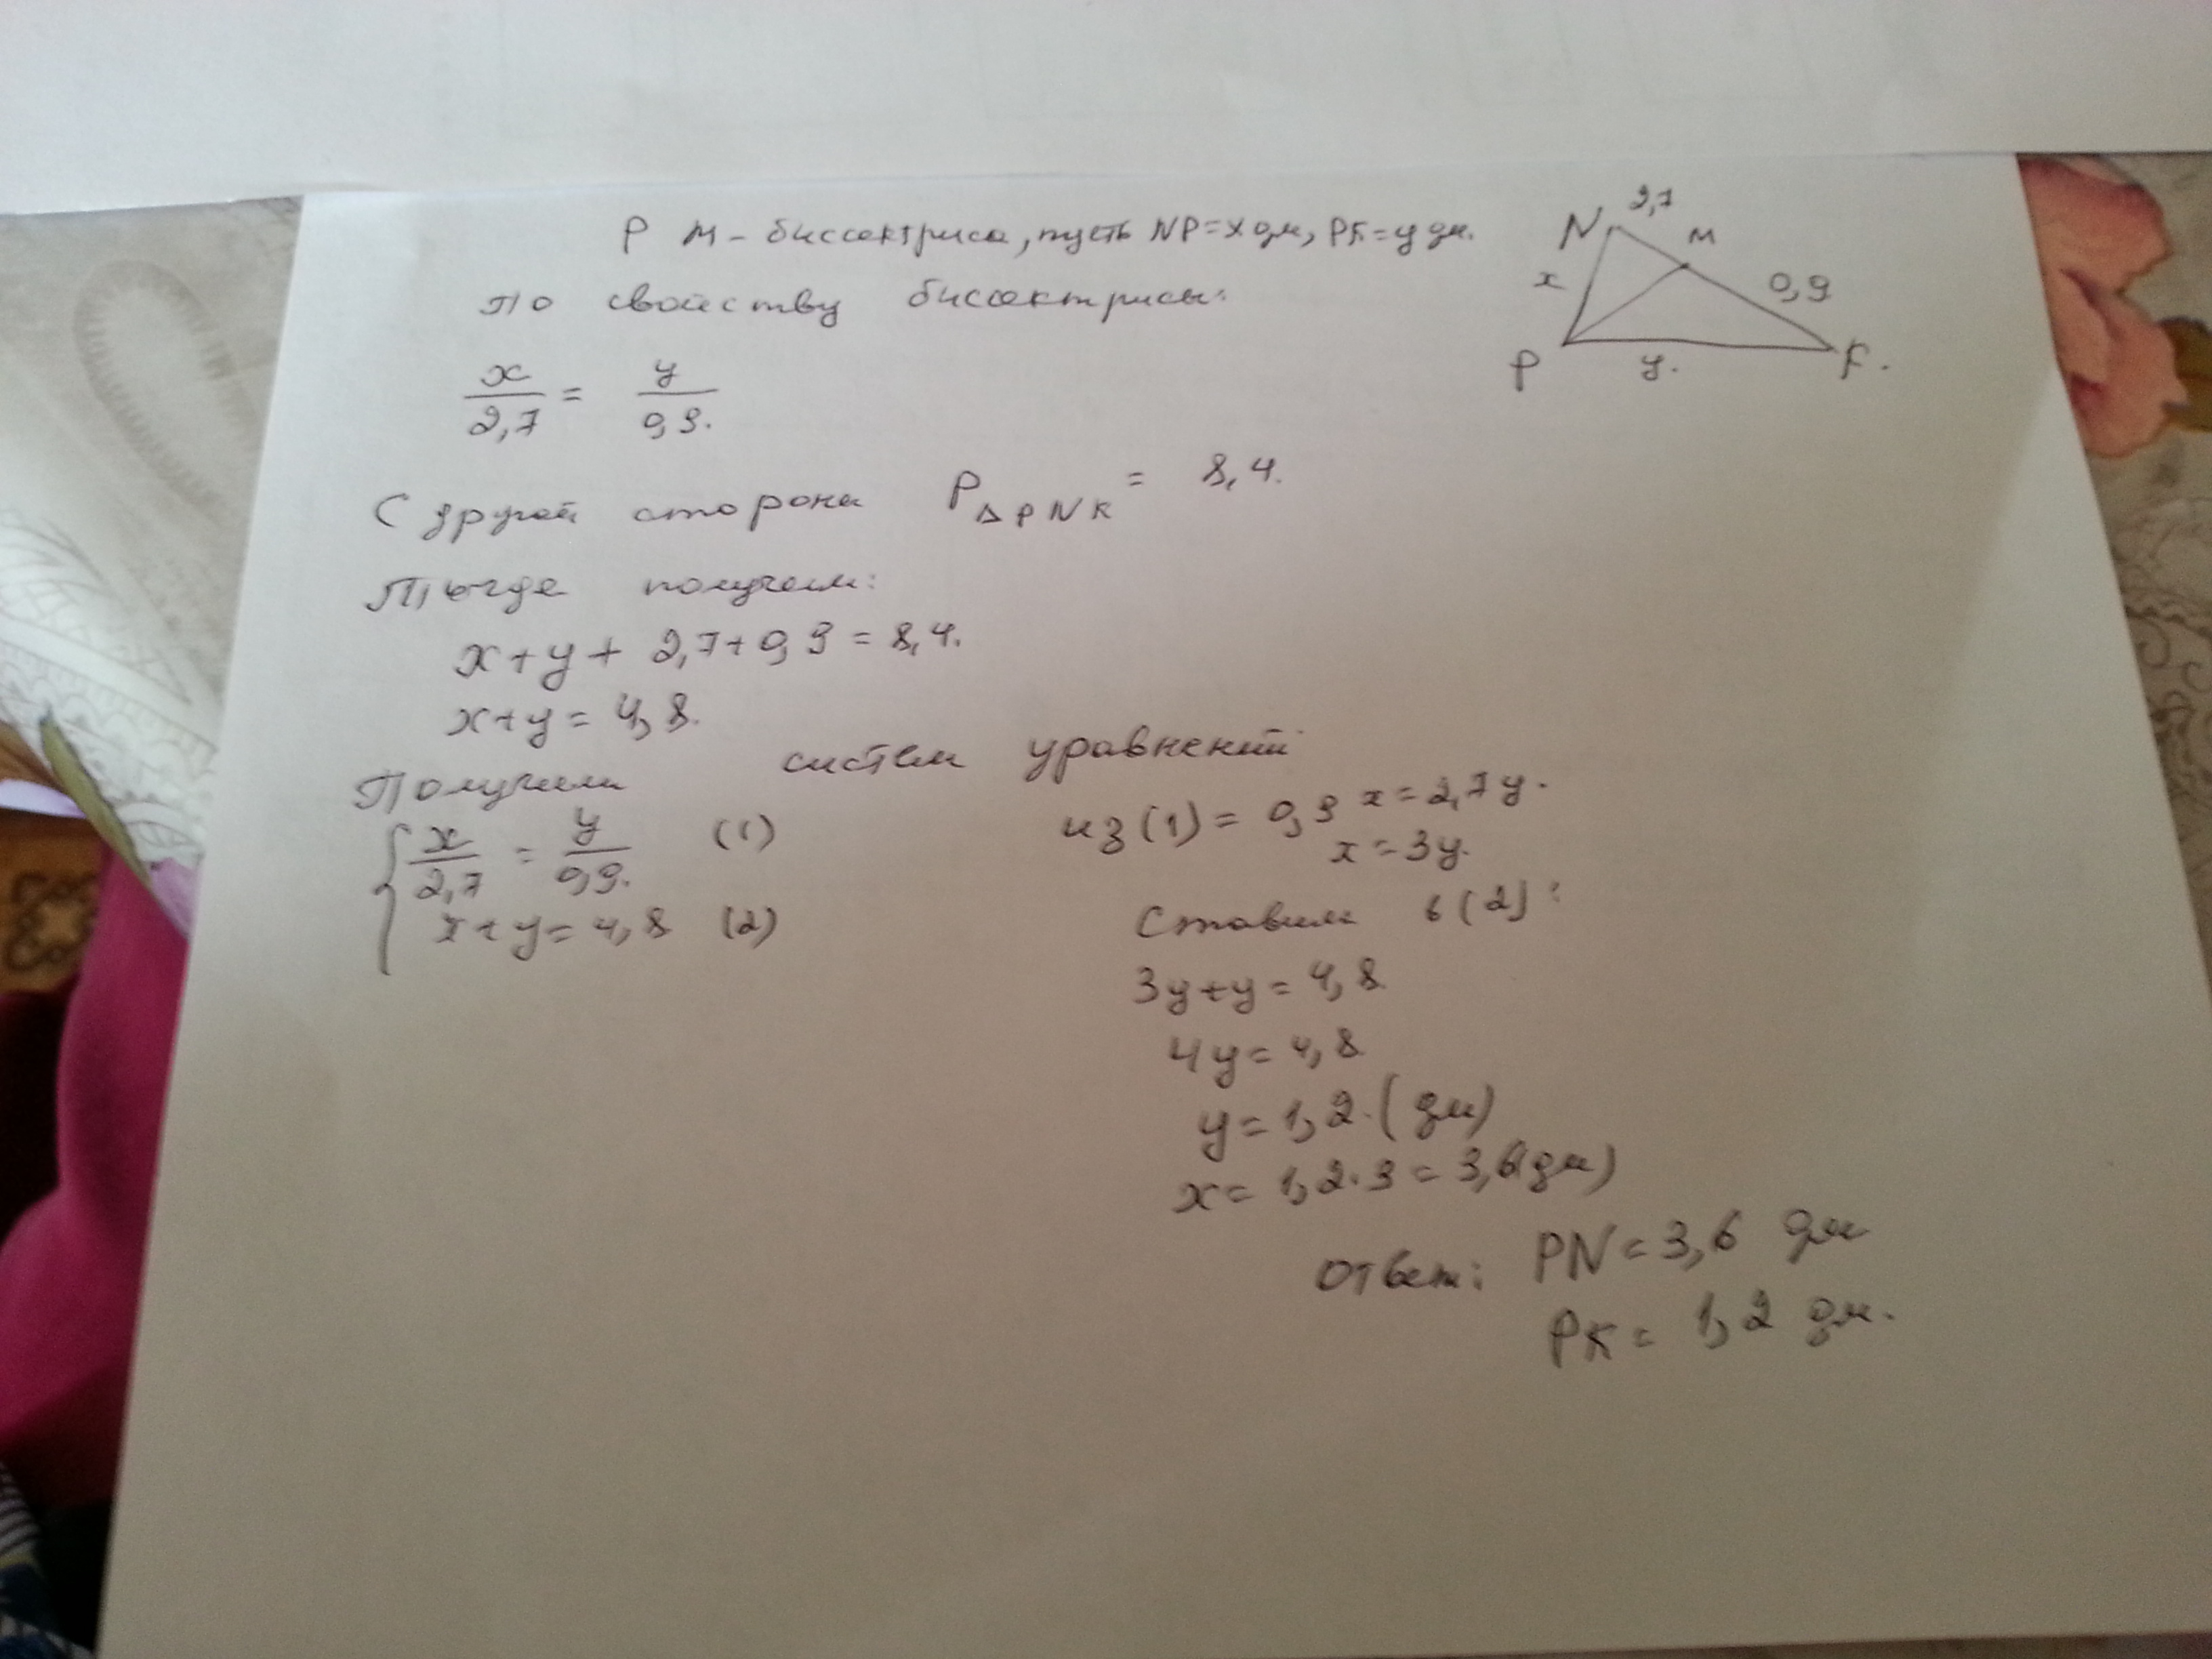 PM - биссектриса, пусть NP=x дм, PK=y дм.
По свойству биссектрисы:
x/2,7 = y/0,9.
С другой стороны P△PNK = 8,4.
получаем:
x+y+2,7+0,9=8,4.
x+y=4,8.
Получили систем уравнений
{ x/2,7 = y/0,9. (1)
x+y=4,8 (2)
из (1) = 0,9x=2,7y.
x=3y.
Ставим в (2):
3y+y=4,8
4y=4,8
y=1,2.(дм)
x=1,2·3=3,6(дм)
Ответ: PN=3,6 дм
PK=1,2 дм.
N 2,7
M
x
0,9
P
y.
K.